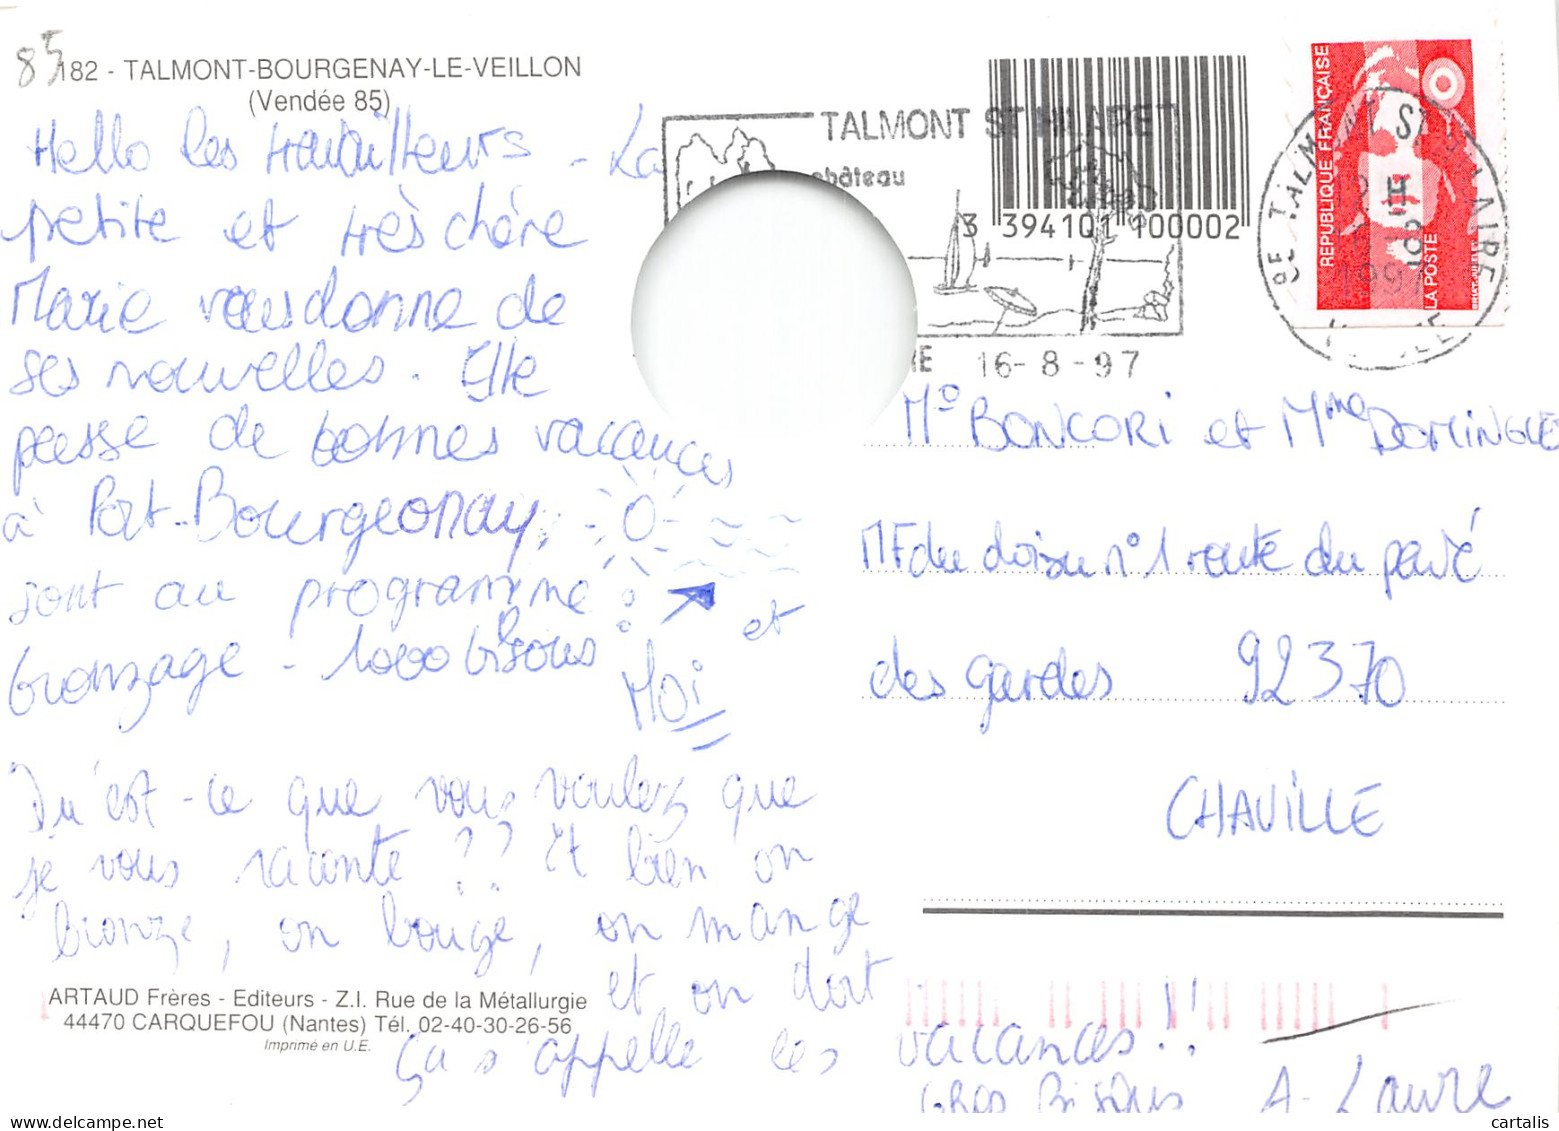 85
182 - TALMONT-BOURGENAY-LE-VEILLON
(Vendée 85)
Hello les travailleurs - La
petite et très chère
Marie vous donne de
ses nouvelles. Elle
passe de bonnes vacances
à Port-Bourgeonay,
sont au programme
bronzage - 1000 bisous
et
Moi
Qu'est-ce que vous voulez que
je vous raconte ?? Et bien on
bronze, on bouge, on mange
et on dort
ça s'appelle les vacances!!
Gros Bisous A-Laure
ARTAUD Frères - Editeurs - Z.I. Rue de la Métallurgie
44470 CARQUEFOU (Nantes) Tél. 02-40-30-26-56
Imprimé en U.E.
TALMONT ST HILAIRE
château
3 394101 100002
16-8-97
REPUBLIQUE FRANÇAISE
LA POSTE
85 TALMONT ST HILAIRE
1997
VENDEE
Mr BONCORI et Mme DOMINGUE
MF du doisu n°1 route du pavé
des gardes 92370
CHAVILLE
cartalis